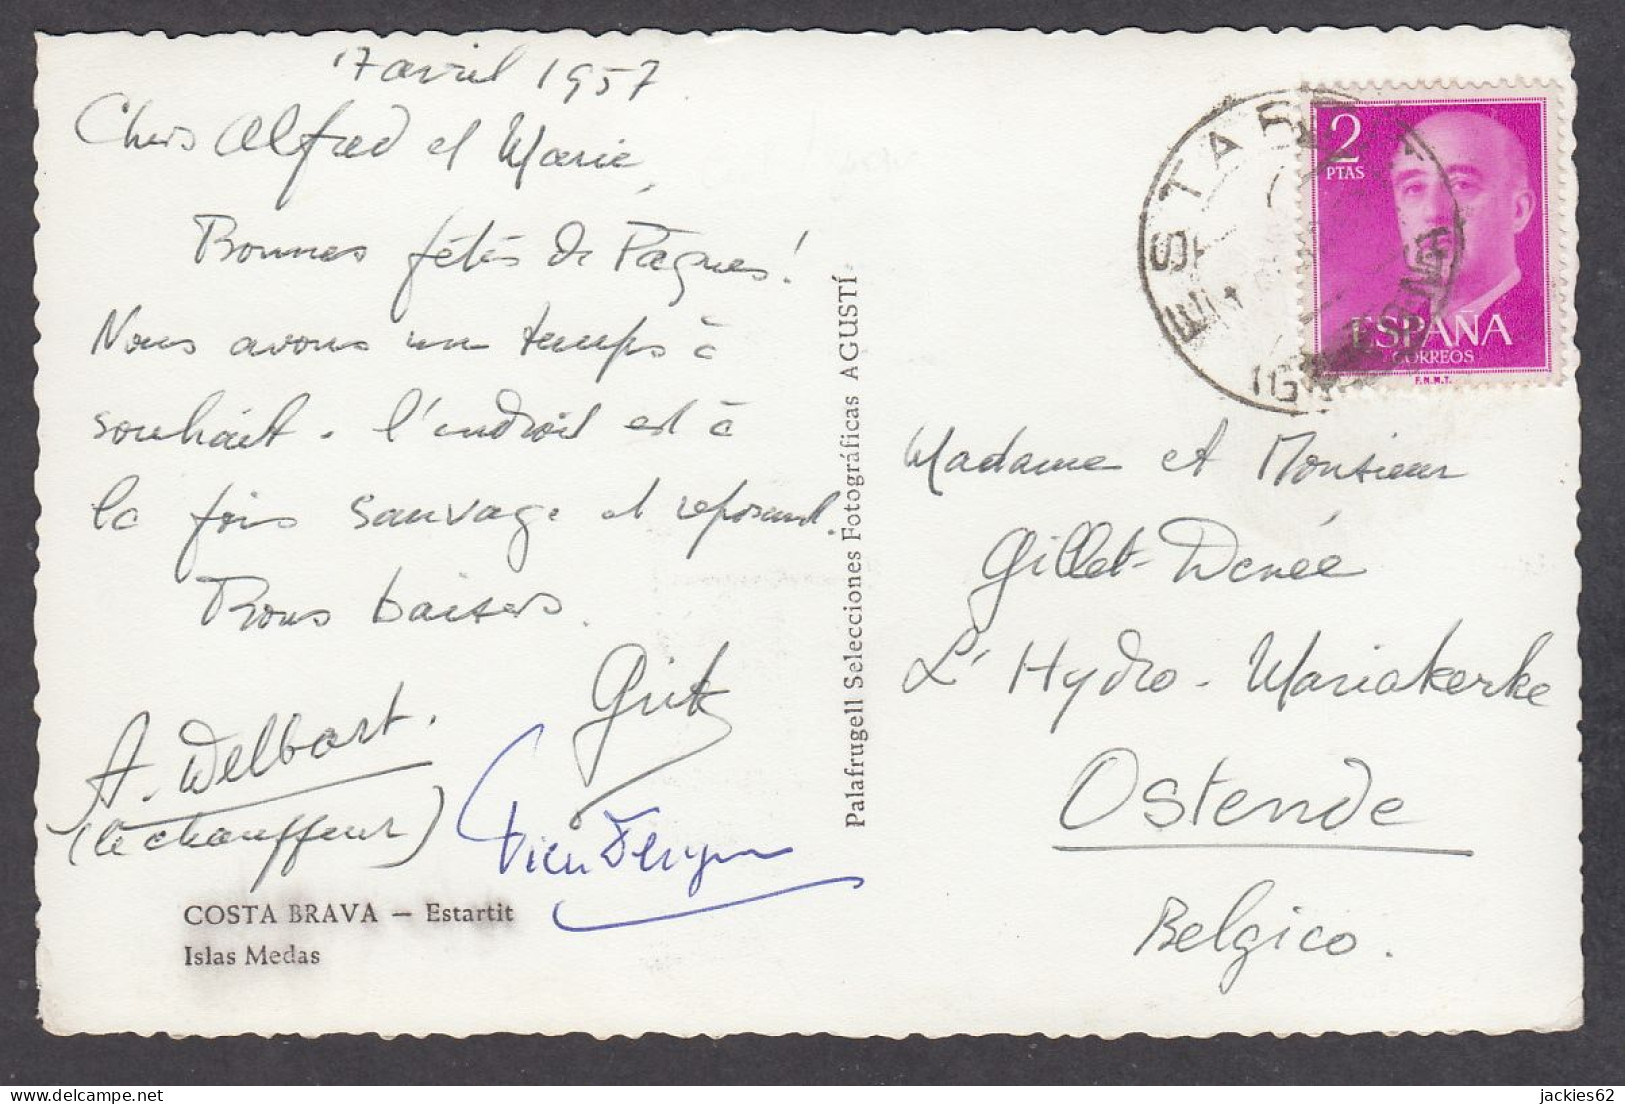 17 avril 1957
Chers Alfred et Marie,
Bonnes fêtes de Pâques!
Nous avons un temps à
souhait. l'endroit est à
la fois sauvage et reposant.
Bons baisers.
A. Delbart.
(le chauffeur)
COSTA BRAVA — Estartit
Islas Medas
Palafrugell Selecciones Fotográficas AGUSTÍ
ESTARTIT
2
PTAS
ESPAÑA
CORREOS
F.N.M.T.
Madame et Monsieur
Gillet-Denée
L'Hydro - Mariakerke
Ostende
Belgico.
jackies62